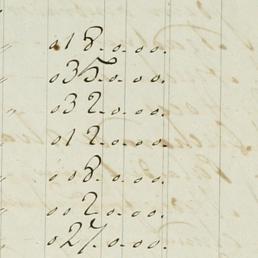 " 018.0.00.
" 035.0.00.
" 032.0.00.
" 012.0.00.
" 008.0.00.
" 002.0.00.
027.0.00.